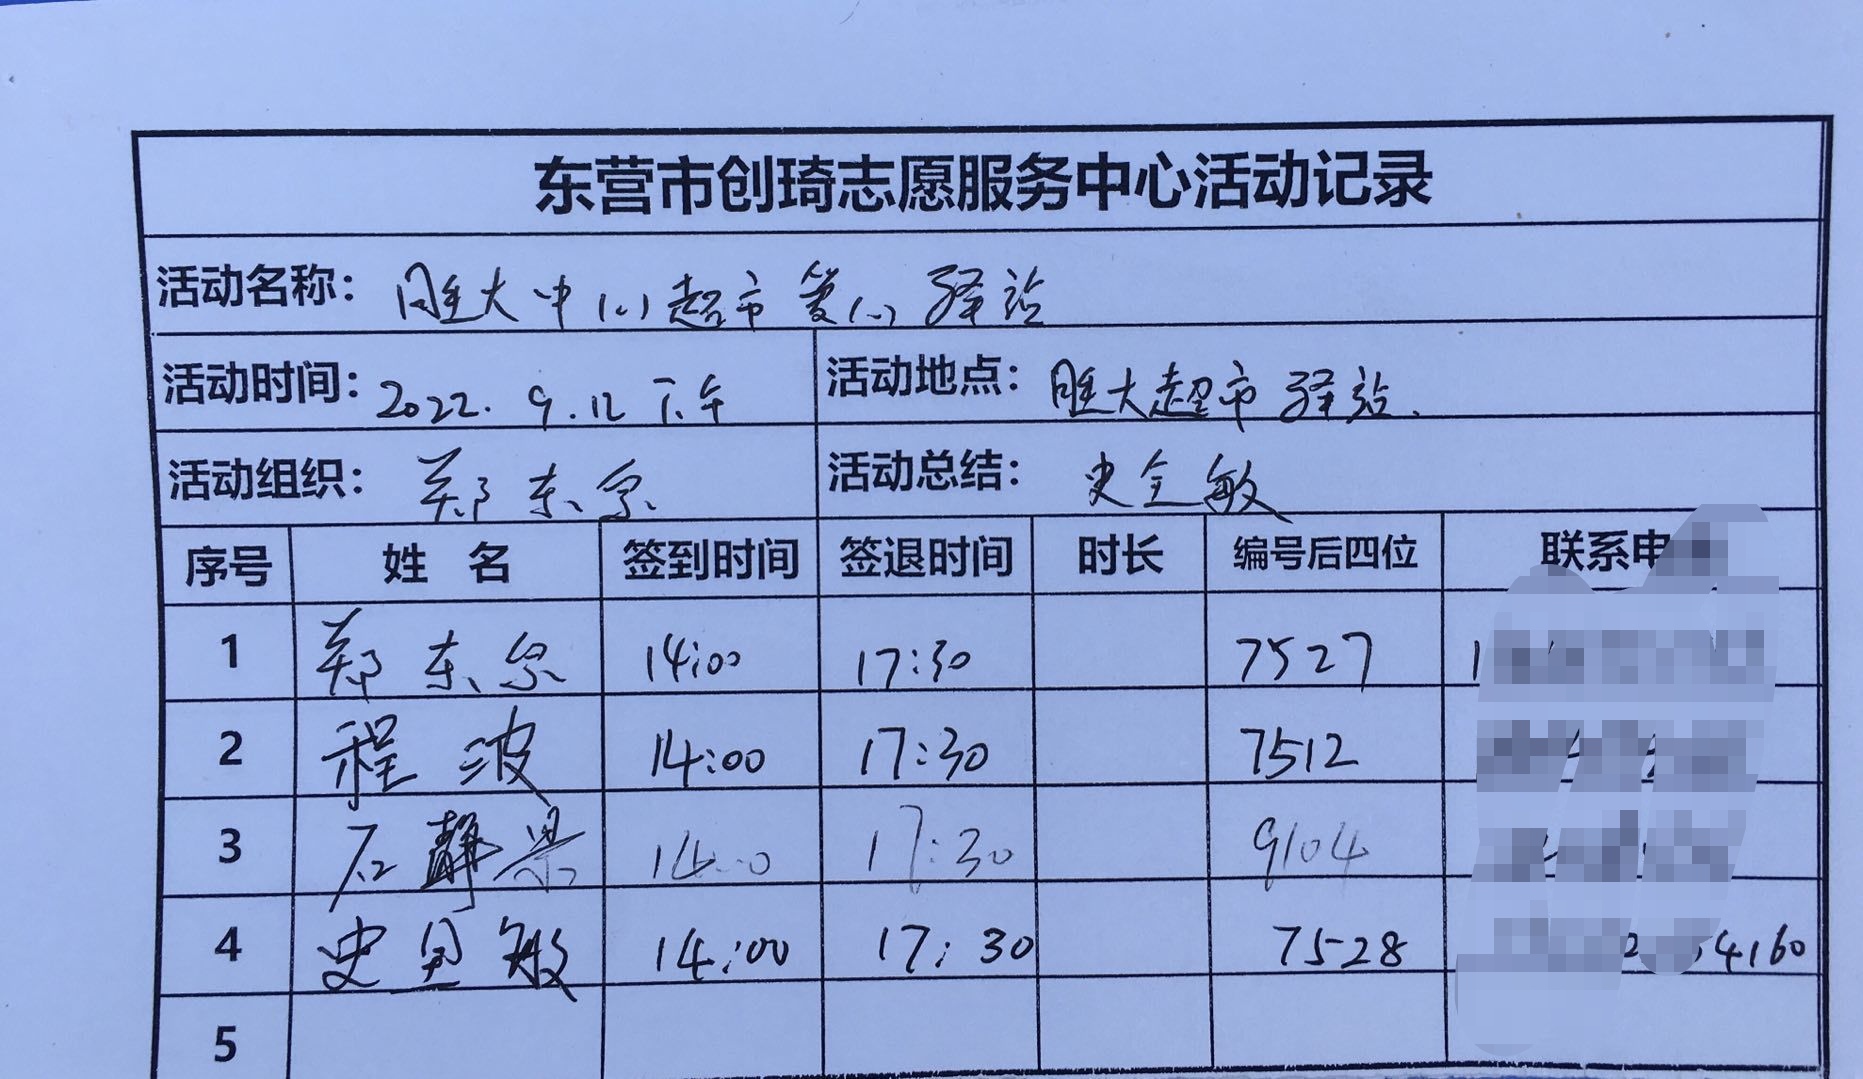 东营市创琦志愿服务中心活动记录
活动名称： 胜大中心超市爱心驿站
活动时间： 2022.9.12下午 活动地点： 胜大超市驿站.
活动组织： 郑东 活动总结： 史全敏
序号 姓名 签到时间 签退时间 时长 编号后四位 联系电
1 郑东 14:00 17:30 7527 1
2 程波 14:00 17:30 7512
3 石静 14:00 17:30 9104
4 史 敏 14:00 17:30 7528 4160
5